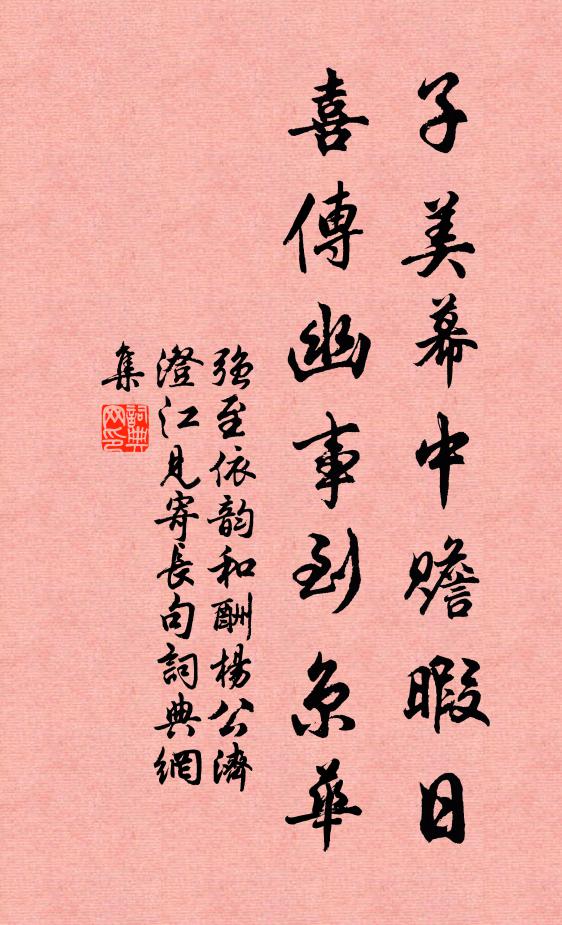 子美幕中贍暇日
喜傳幽事到京華
強至依韵和酬楊公濟
澄江見寄長句詞典網
集
詞典網印